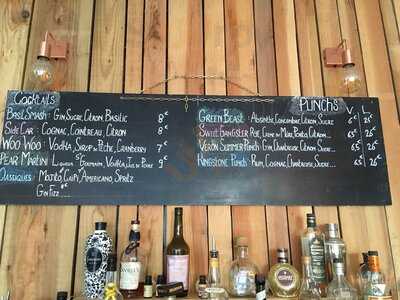 Cocktails
Basil Smash : Gin, Sucre, Citron, Basilic 8€
Side Car : Cognac, Cointreau, Citron 8€
Woo Woo : Vodka, Sirop de Pêche, Cranberry 7€
Pear Martini : Liqueur St Germain, Vodka, Jus de Poire 9€
Classiques : Mojito, Caïpi, Americano, Spritz
Gin Fizz 6€
Punchs
Green Beast : Absinthe, Concombre, Citron, Sucre 6€ 21€
Sweet Gangster : Père, Crème de Mûre, Porto, Citron... 6,5€ 26€
Veron Summer Punch : Gin, Cranberry, Citron, Sucre 6,5€ 26€
Kingstone Punch : Rum, Cognac, Chardonnay, Sucre.... 6,5€ 26€